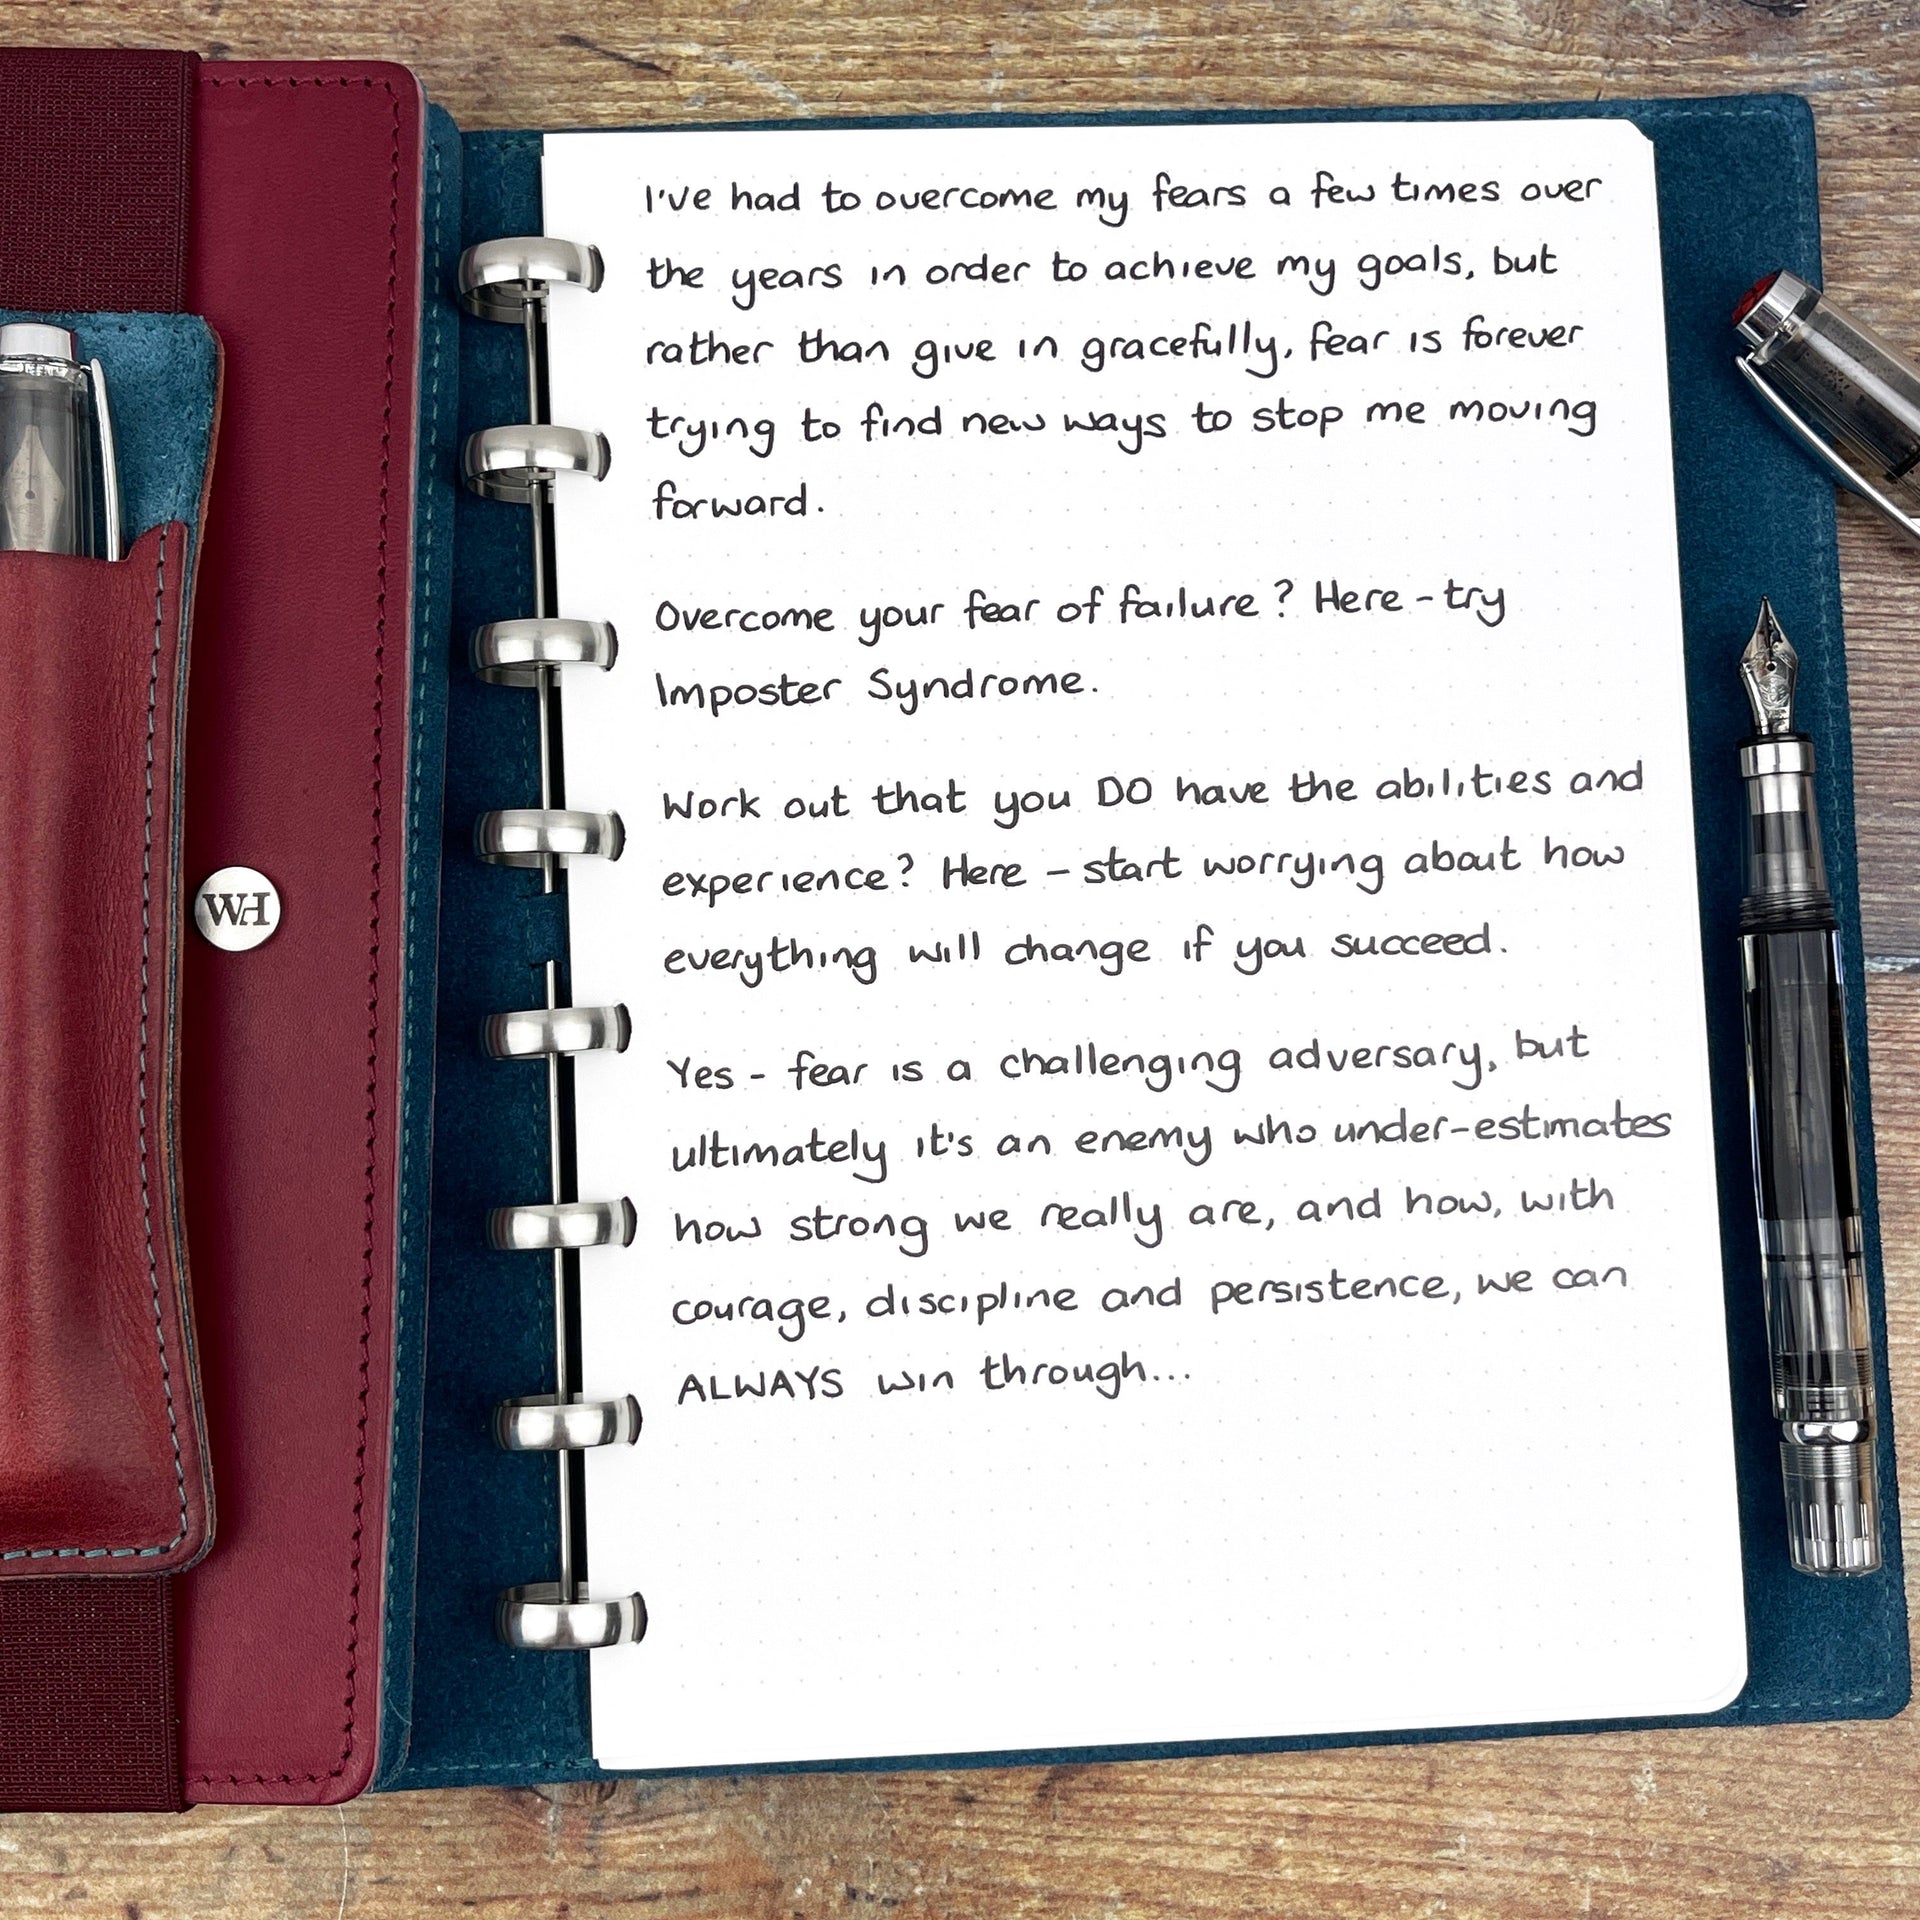 I've had to overcome my fears a few times over
the years in order to achieve my goals, but
rather than give in gracefully, fear is forever
trying to find new ways to stop me moving
forward.
Overcome your fear of failure? Here - try
Imposter Syndrome.
Work out that you DO have the abilities and
experience? Here - start worrying about how
everything will change if you succeed.
Yes - fear is a challenging adversary, but
ultimately it's an enemy who under-estimates
how strong we really are, and how, with
courage, discipline and persistence, we can
ALWAYS win through...
WH